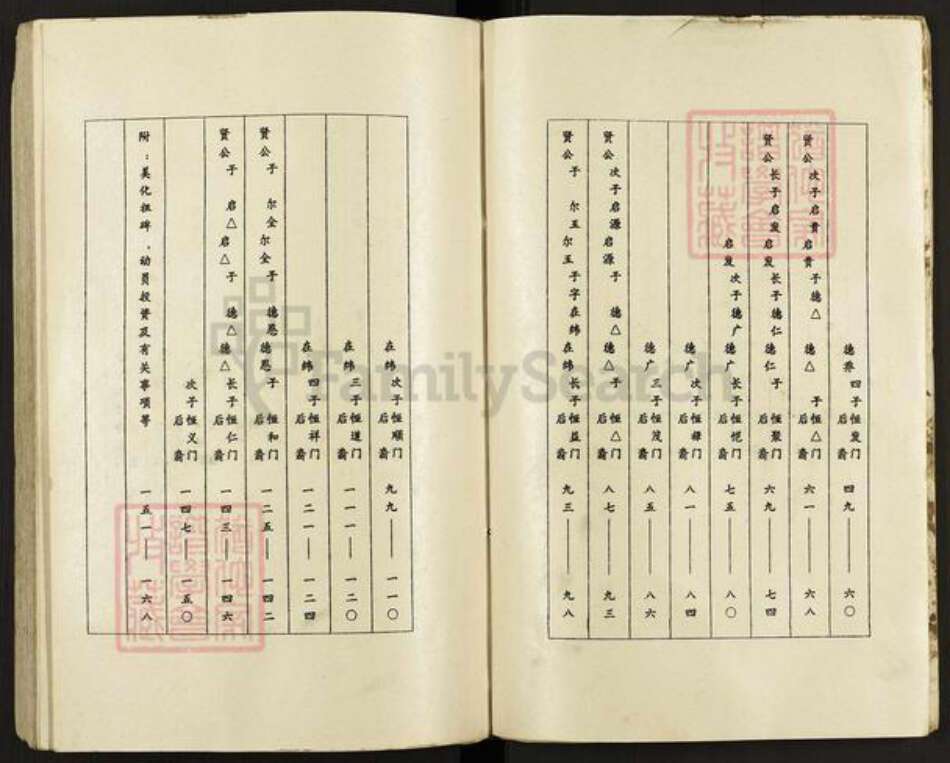 德乔 四子恒发门后裔 四九——六〇
贤公次子启贵启贵子德△ 德△ 子恒△门后裔 六一——六八
贤公长子启发启发长子德仁德仁子恒聚门后裔 六九——七四
启发次子德广德广长子恒恺门后裔 七五——八〇
德广次子恒禄门后裔 八一——八四
德广三子恒茂门后裔 八五——八六
贤公次子启源启源子 德△德△子恒△门后裔 八七——九三
贤公子 尔玉尔玉子字在纬在纬长子恒益门后裔 九三——九八
在纬次子恒顺门后裔 九九——一一〇
在纬三子恒道门后裔 一一一——一二〇
在纬四子恒祥门后裔 一二一——一二四
贤公子 尔全尔全子 德恩德恩子恒和门后裔 一二五——一四二
贤公子 启△启△子 德△德△长子恒仁门后裔 一四三——一四六
次子恒义门后裔 一四七——一五〇
附:美化祖碑、动员投资及有关事项等 一五一——一六八
FamilySearch